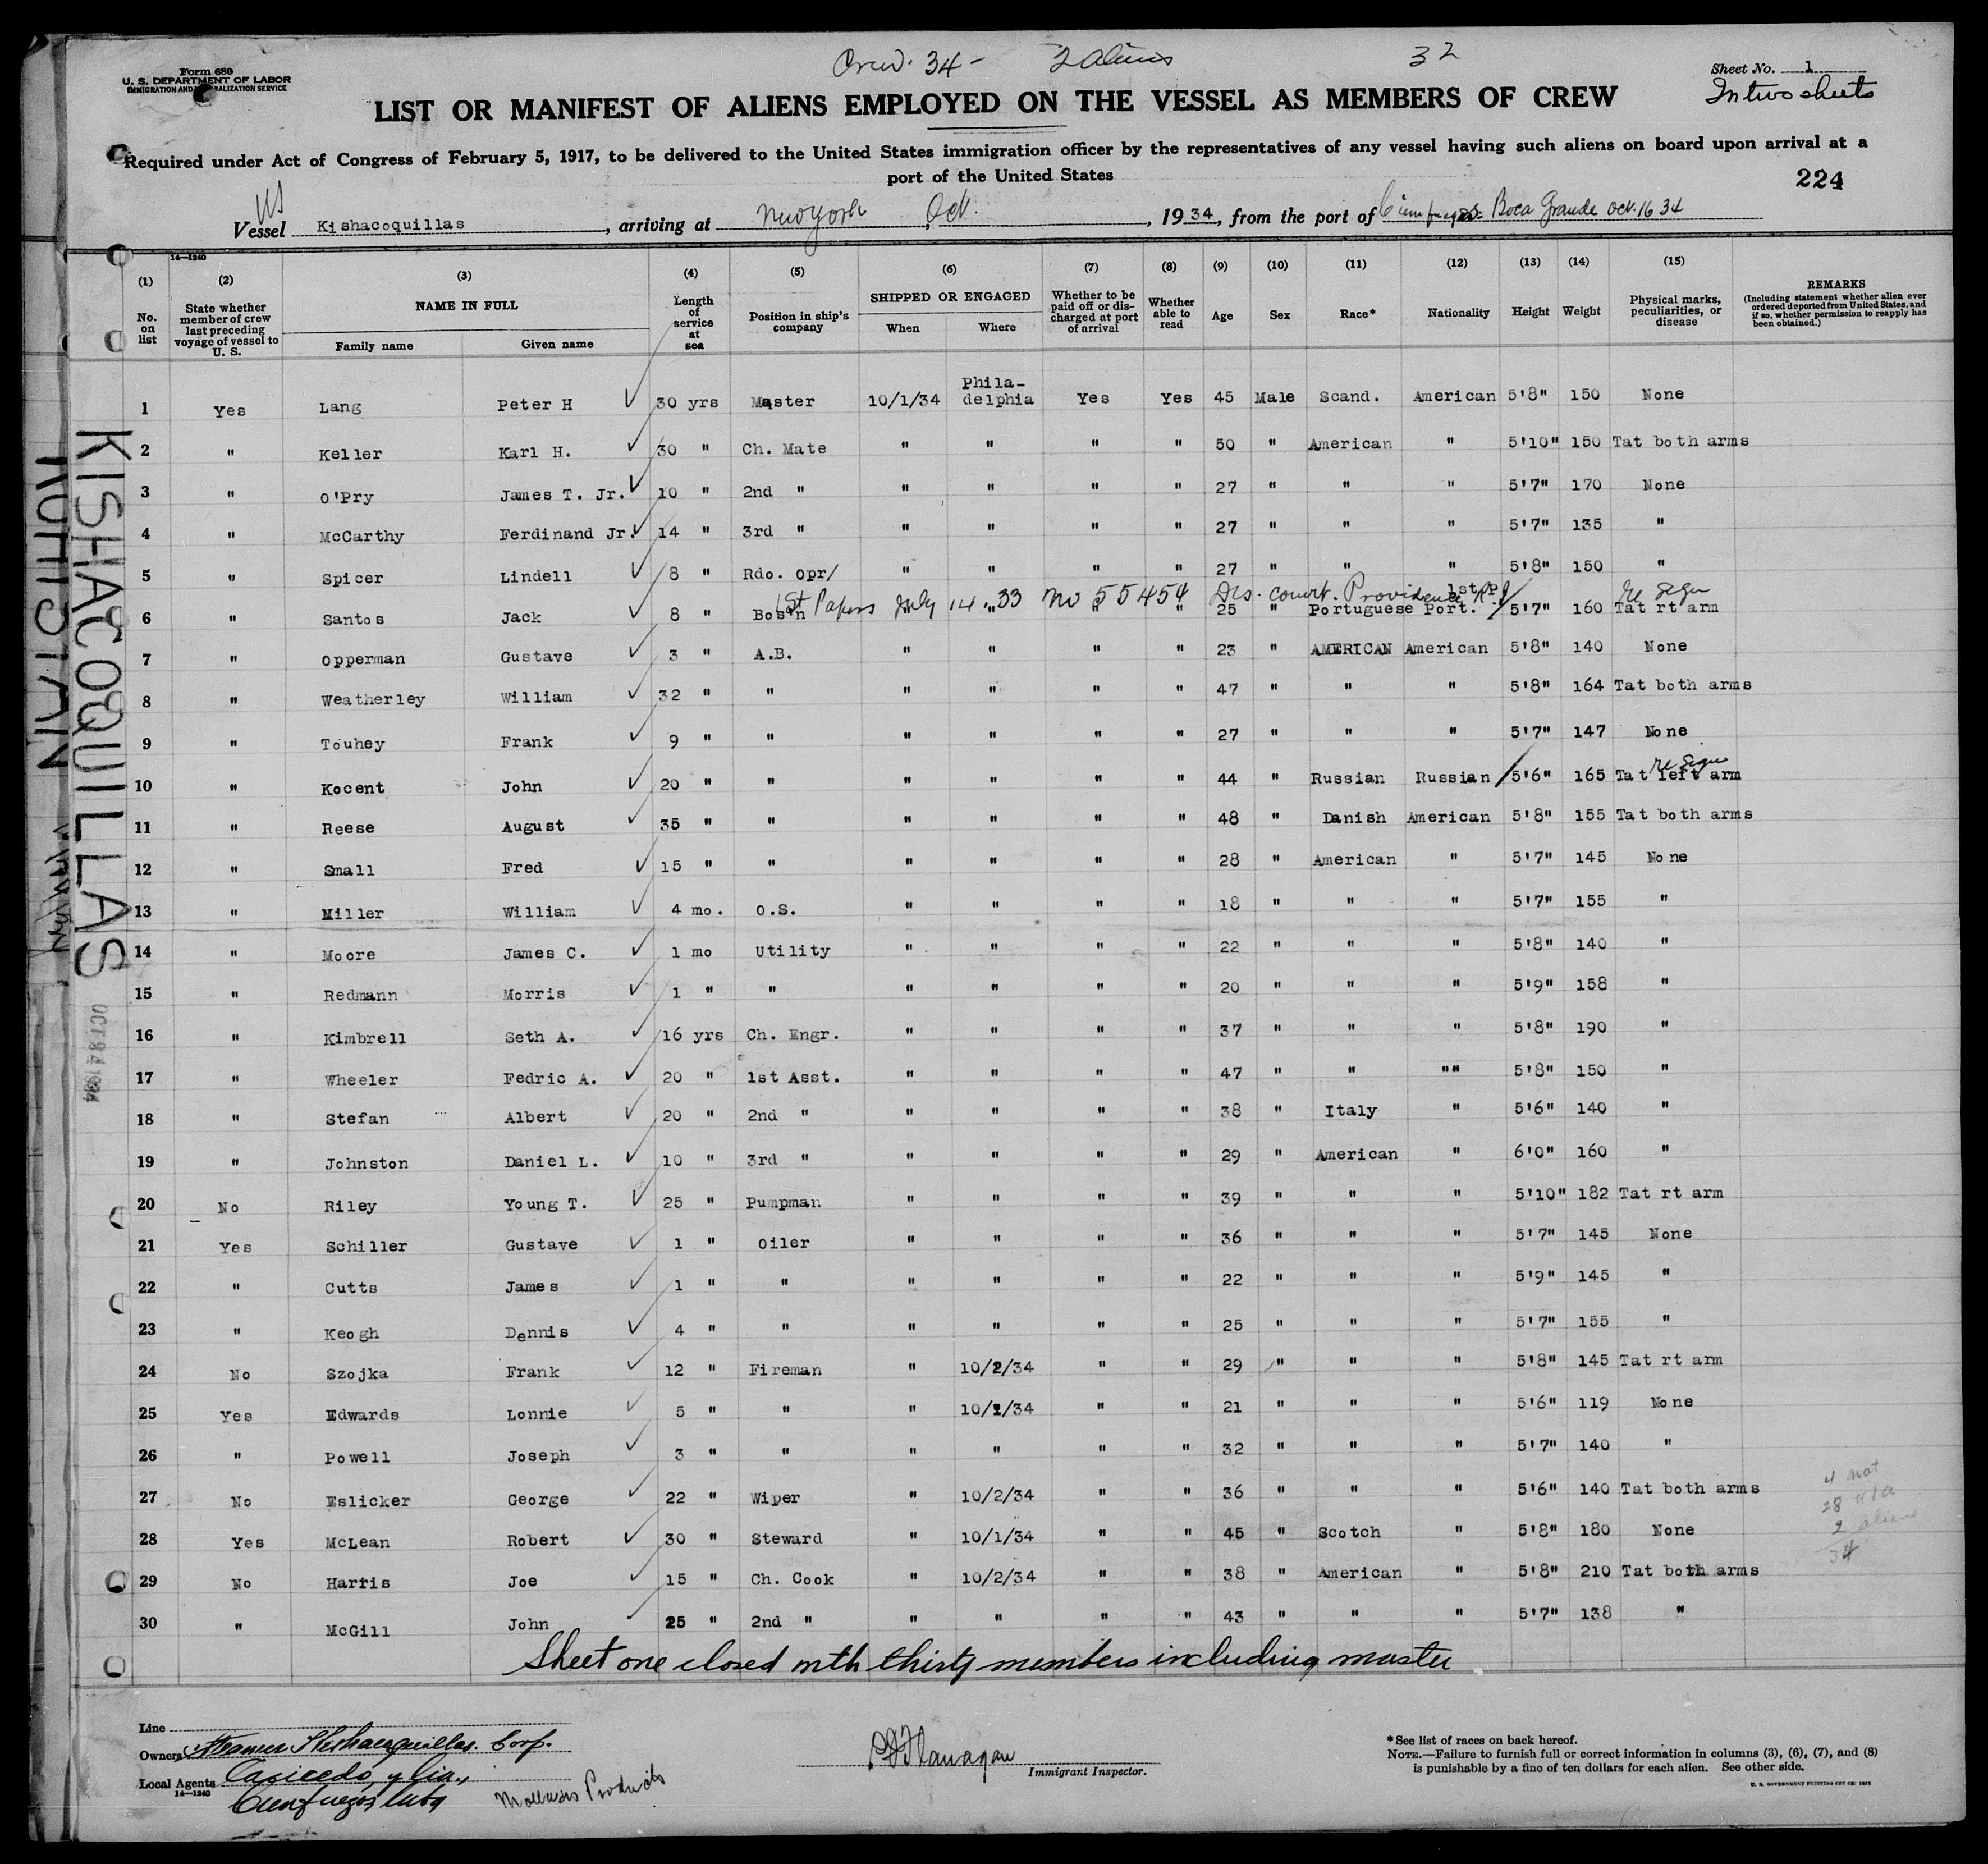 Crew 34 - 2 aliens 32
Form 680
U. S. DEPARTMENT OF LABOR
IMMIGRATION AND NATURALIZATION SERVICE
Sheet No. 1
In two sheets
LIST OR MANIFEST OF ALIENS EMPLOYED ON THE VESSEL AS MEMBERS OF CREW
Required under Act of Congress of February 5, 1917, to be delivered to the United States immigration officer by the representatives of any vessel having such aliens on board upon arrival at a
port of the United States
224
Vessel Kishacoquillas, arriving at New York, Oct., 1934, from the port of Cienfuegos. Boca Grande Oct. 16 34
14—1240
(1) (2) (3) (4) (5) (6) (7) (8) (9) (10) (11) (12) (13) (14) (15)
No. on list | State whether member of crew last preceding voyage of vessel to U. S. | NAME IN FULL | Family name | Given name | Length of service at sea | Position in ship's company | SHIPPED OR ENGAGED | When | Where | Whether to be paid off or discharged at port of arrival | Whether able to read | Age | Sex | Race* | Nationality | Height | Weight | Physical marks, peculiarities, or disease | REMARKS (Including statement whether alien ever ordered deported from United States, and if so, whether permission to reapply has been obtained.)
1 Yes Lang Peter H ✓ 30 yrs Master 10/1/34 Phila-delphia Yes Yes 45 Male Scand. American 5'8" 150 None
2 " Keller Karl H. ✓ 30 " Ch. Mate " " " " 50 " American " 5'10" 150 Tat both arms
3 " O'Pry James T. Jr. ✓ 10 " 2nd " " " " " 27 " " " 5'7" 170 None
4 " McCarthy Ferdinand Jr. ✓ 14 " 3rd " " " " " 27 " " " 5'7" 135 "
5 " Spicer Lindell ✓ 8 " Rdo. Opr/ " " " " 27 " " " 5'8" 150 "
1st Papers July 14. 33 No 55454 Dis. court. Providence R.I. 1st pp
6 " Santos Jack ✓ 8 " Bos'n " " " " 25 " Portuguese Port. 5'7" 160 Tat rt arm
7 " Opperman Gustave ✓ 3 " A.B. " " " " 23 " AMERICAN American 5'8" 140 None
8 " Weatherley William ✓ 32 " " " " " " 47 " " " 5'8" 164 Tat both arms
9 " Touhey Frank ✓ 9 " " " " " " 27 " " " 5'7" 147 None
10 " Kocent John ✓ 20 " " " " " " 44 " Russian Russian 5'6" 165 Tat left arm
11 " Reese August ✓ 35 " " " " " " 48 " Danish American 5'8" 155 Tat both arms
12 " Small Fred ✓ 15 " " " " " " 28 " American " 5'7" 145 None
13 " Miller William ✓ 4 mo. O.S. " " " " 18 " " " 5'7" 155 "
14 " Moore James C. ✓ 1 mo Utility " " " " 22 " " " 5'8" 140 "
15 " Redmann Morris ✓ 1 " " " " " " 20 " " " 5'9" 158 "
16 " Kimbrell Seth A. ✓ 16 yrs Ch. Engr. " " " " 37 " " " 5'8" 190 "
17 " Wheeler Fedric A. ✓ 20 " 1st Asst. " " " " 47 " " "" 5'8" 150 "
18 " Stefan Albert ✓ 20 " 2nd " " " " " 38 " Italy " 5'6" 140 "
19 " Johnston Daniel L. ✓ 10 " 3rd " " " " " 29 " American " 6'0" 160 "
20 No Riley Young T. ✓ 25 " Pumpman " " " " 39 " " " 5'10" 182 Tat rt arm
21 Yes Schiller Gustave ✓ 1 " Oiler " " " " 36 " " " 5'7" 145 None
22 " Cutts James ✓ 1 " " " " " " 22 " " " 5'9" 145 "
23 " Keogh Dennis ✓ 4 " " " " " " 25 " " " 5'7" 155 "
24 No Szojka Frank ✓ 12 " Fireman " 10/2/34 " " 29 " " " 5'8" 145 Tat rt arm
25 Yes Edwards Lonnie ✓ 5 " " " 10/1/34 " " 21 " " " 5'6" 119 None
26 " Powell Joseph ✓ 3 " " " " " " 32 " " " 5'7" 140 "
27 No Eslicker George ✓ 22 " Wiper " 10/2/34 " " 36 " " " 5'6" 140 Tat both arms
28 Yes McLean Robert ✓ 30 " Steward " 10/1/34 " " 45 " Scotch " 5'8" 180 None
29 No Harris Joe ✓ 15 " Ch. Cook " 10/2/34 " " 38 " American " 5'8" 210 Tat both arms
30 " McGill John ✓ 25 " 2nd " " " " " 43 " " " 5'7" 138 "
4 nat
28
2 aliens
34
Sheet one closed with thirty members including master
KISHACOQUILLAS
Line
Owners Steamer Kishacoquillas. Corp.
Local Agents Cacicedo y Cia.,
14—1240
Cienfuegos Cuba
Molasses Products
Flanagan
Immigrant Inspector.
*See list of races on back hereof.
NOTE.—Failure to furnish full or correct information in columns (3), (6), (7), and (8)
is punishable by a fine of ten dollars for each alien. See other side.